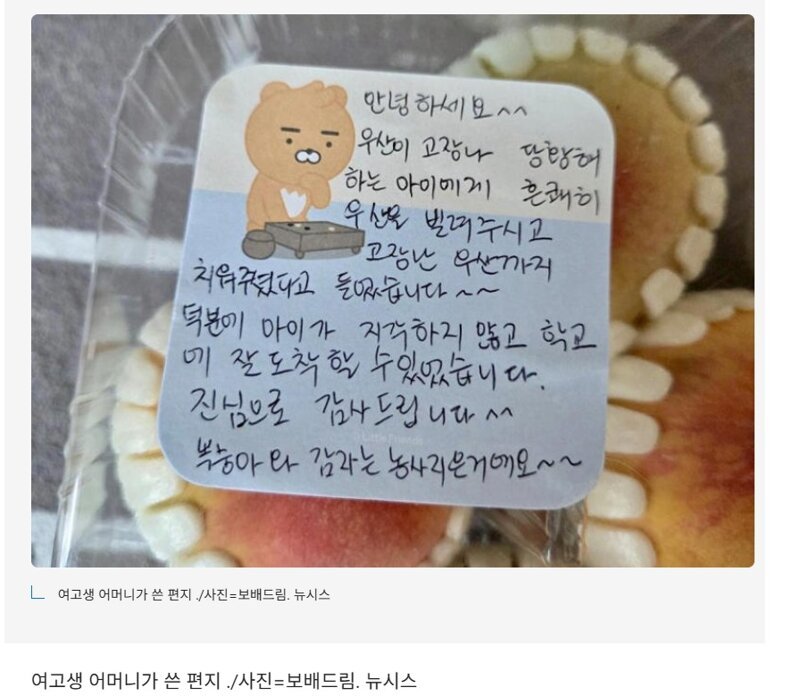 안녕하세요^^
우산이 고장나 당황해
하는 아이에게 흔쾌히
우산을 빌려주시고
고장난 우산까지
치워주셨다고 들었습니다~~
덕분에 아이가 지각하지 않고 학교
에 잘 도착할 수있었습니다.
진심으로 감사드립니다^^
Little Friends
복숭아와 감자는 농사지은거예요~~
여고생 어머니가 쓴 편지 ./사진=보배드림. 뉴시스
여고생 어머니가 쓴 편지 ./사진=보배드림. 뉴시스